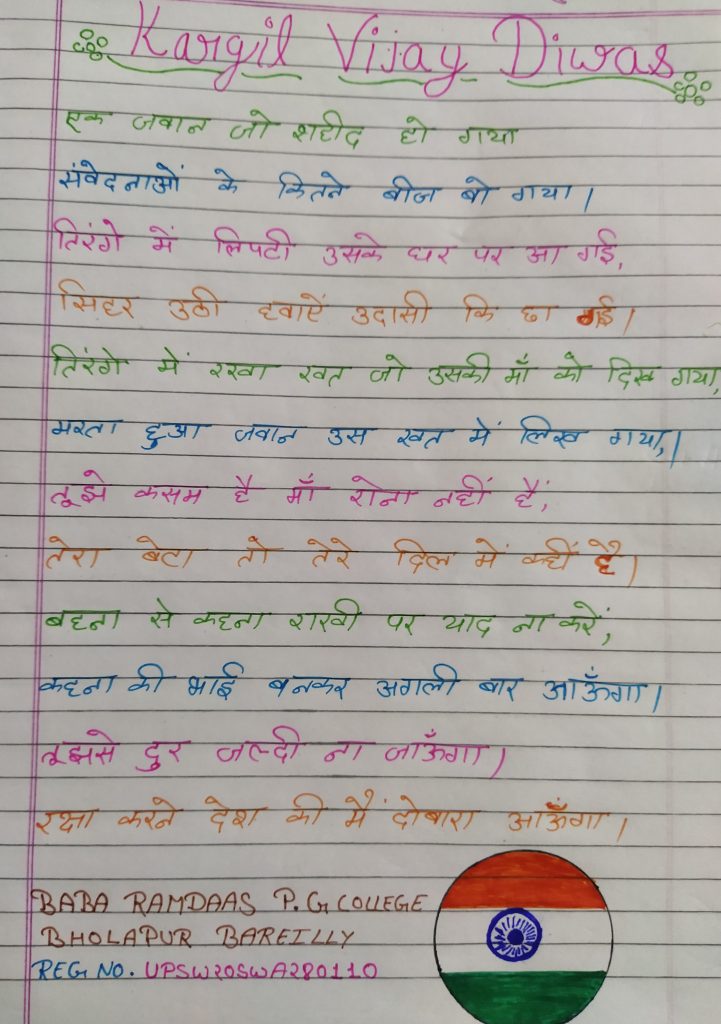 Kargil Vijay Diwas
एक जवान जो शहीद हो गया
संवेदनाओं के कितने बीज बो गया।
तिरंगे में लिपटी उसके घर पर आ गई,
सिहर उठी हवाऐं उदासी कि छा गई।
तिरंगे में रखा खत जो उसकी माँ को दिख गया,
मरता हुआ जवान उस खत में लिख गया,।
तूझे कसम है माँ रोना नहीं हैं,
तेरा बेटा तो तेरे दिल में कहीं है।
बहना से कहना राखी पर याद ना करें,
कहना की भाई बनकर अगली बार आऊँगा।
तूझसे दुर जल्दी ना जाऊँगा।
रक्षा करने देश की मैं दोबारा आऊँगा।
BABA RAMDAAS P.G COLLEGE
BHOLAPUR BAREILLY
REG NO. UPSW20SWA280110